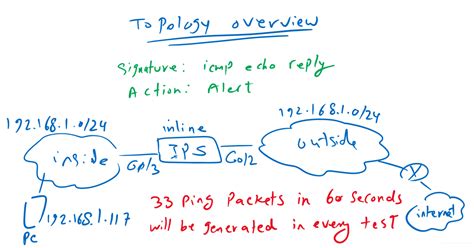 Topology overview
Signature: icmp echo reply
Action: Alert
192.168.1.0/24
192.168.1.0/24
inline
inside
G0/3
IPS
G0/2
outside
33 Ping Packets in 60 seconds
will be generated in every test
internet
192.168.1.117
PC